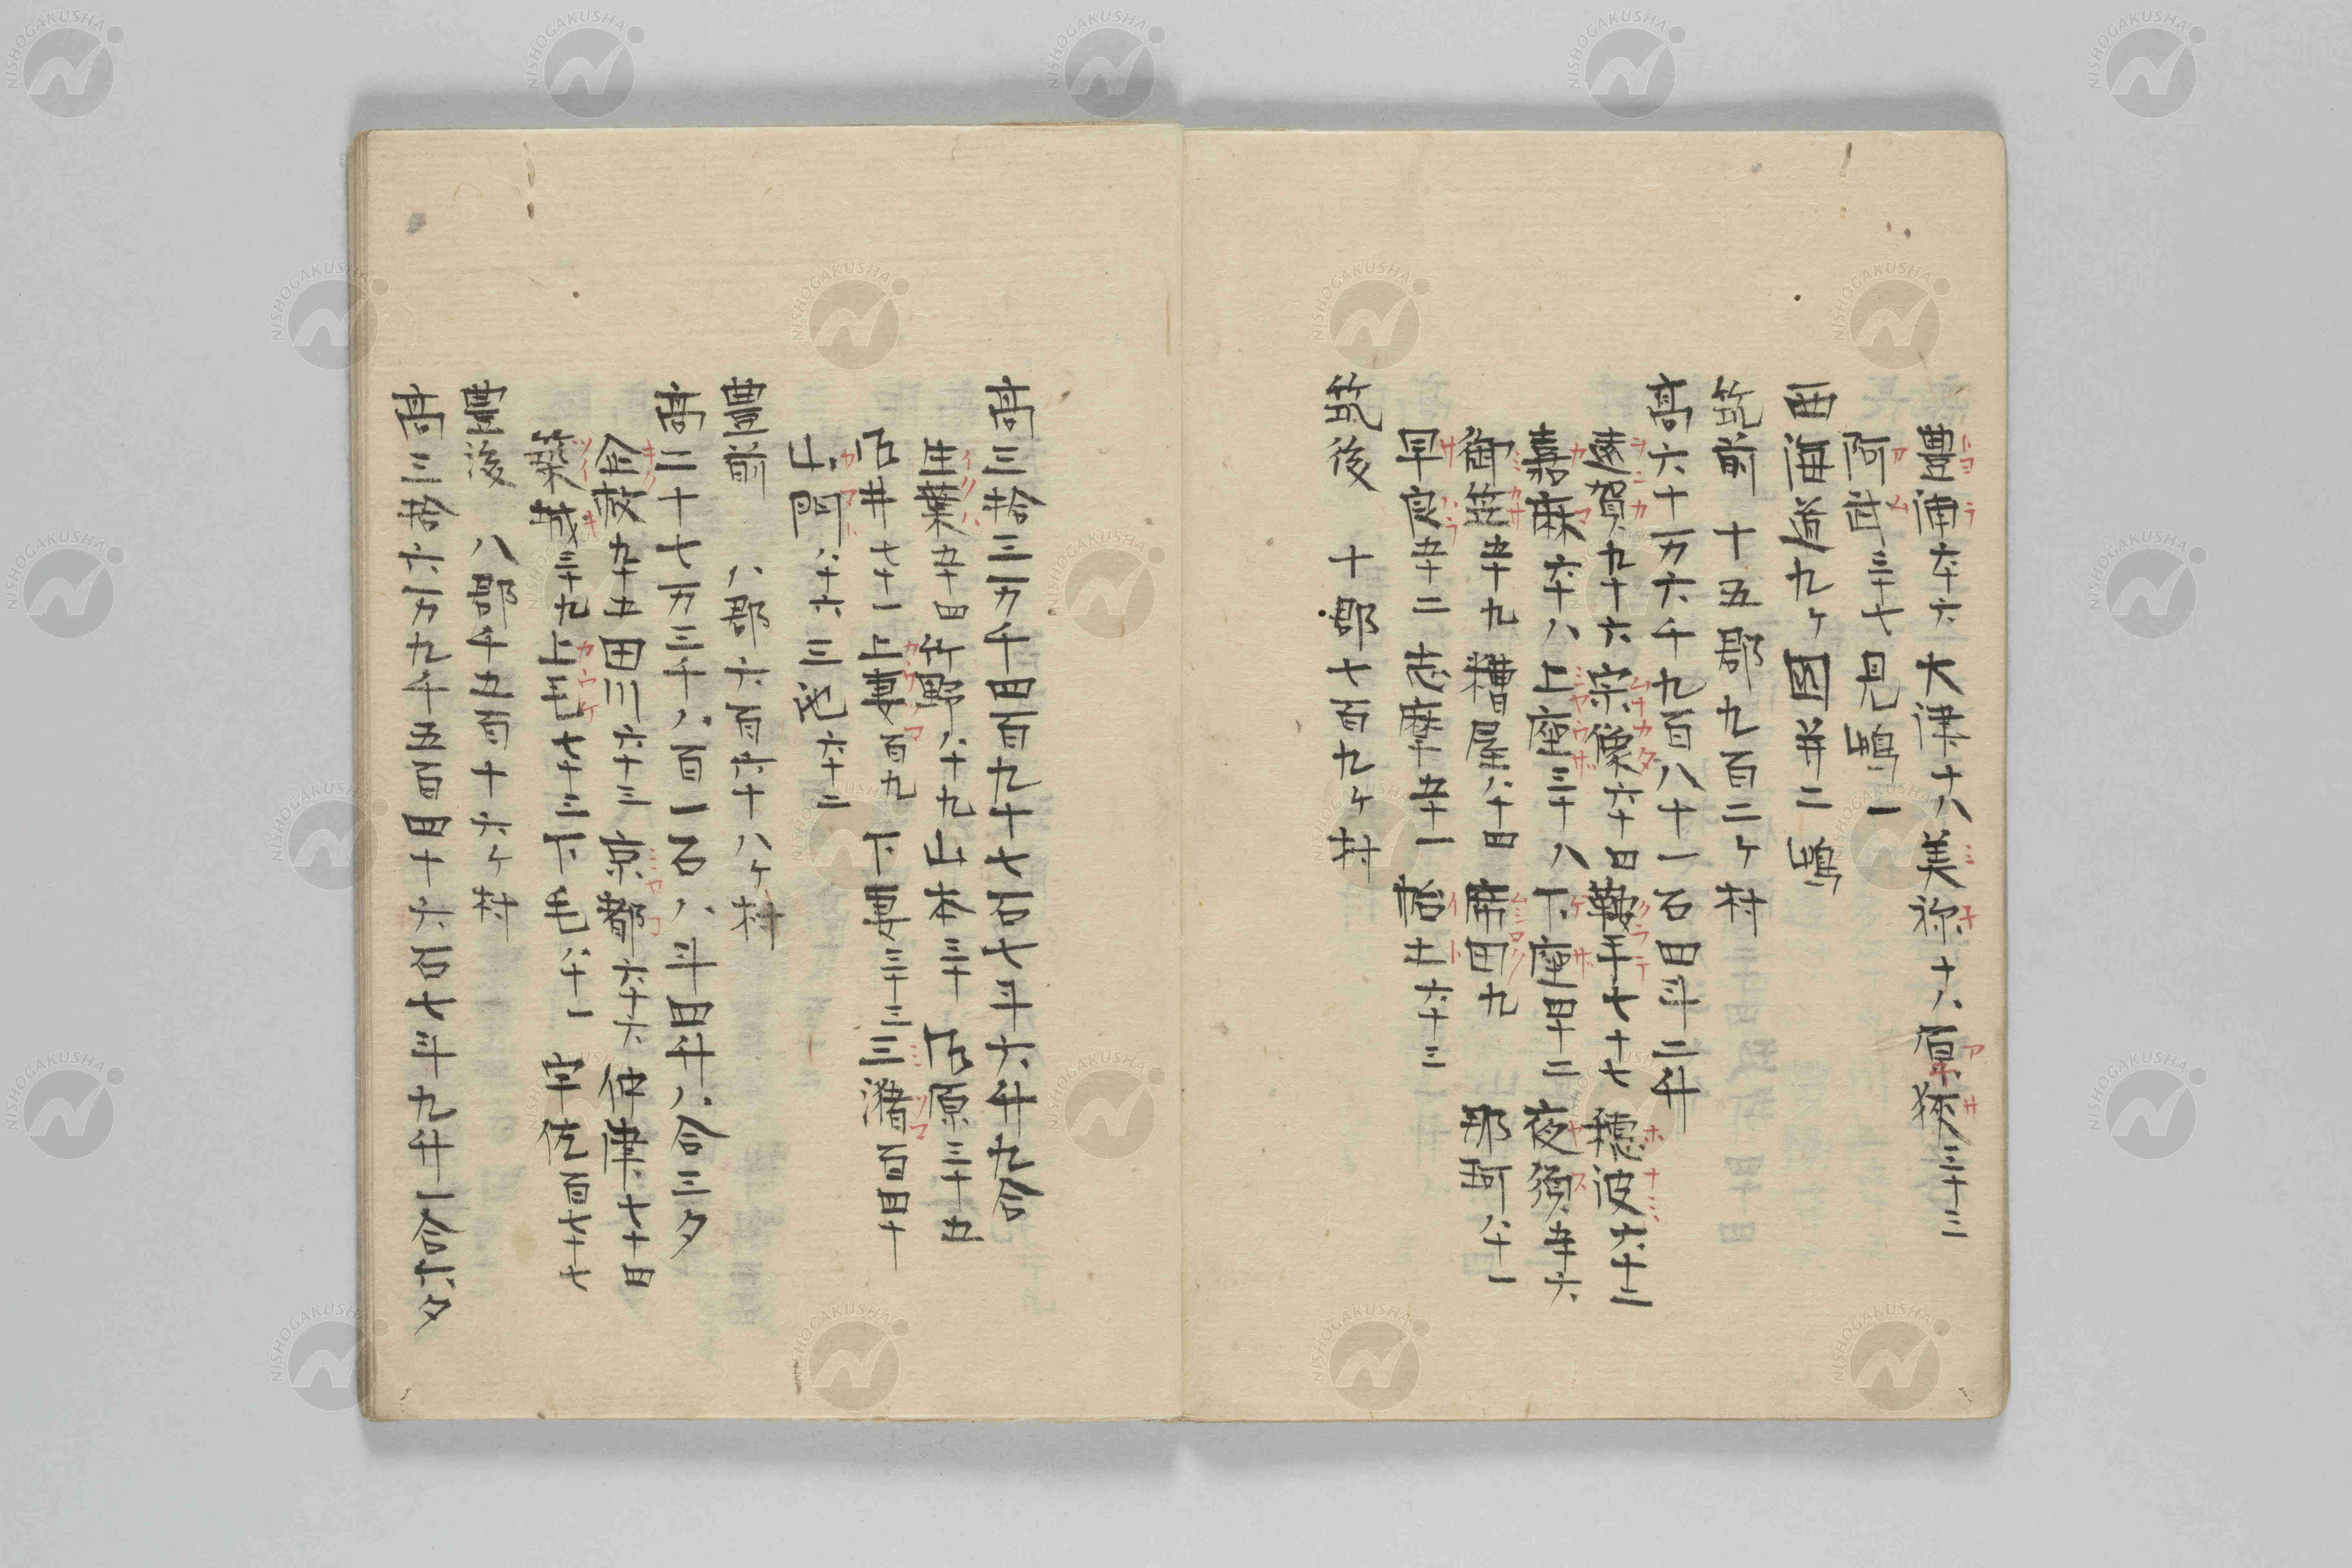 トヨラ ミネ アサ
豊浦六十六 大津十八 美祢十八 厚狹三十三
アム
阿武三十七 見嶋一
西海道九ヶ國并二嶋
筑前 十五郡九百二ヶ村
高六十万六千九百八十一石四斗二升
ヲンカ ムナカタ クラテ ホナミ
遠賀九十六 宗像六十四 鞍手七十七 穂波六十二
カマ シヤウサ ケサ ヤス
嘉麻六十八 上座三十八 下座四十二 夜須五十六
ミカサ ムシロタ
御笠五十九 糟屋八十四 席田九 那珂八十一
サハラ イト
早良五十二 志摩五十一 怡土六十三
筑後 十郡七百九ヶ村
高三拾三万千四百九十七石七斗六升九合
イクハ
生葉五十四 竹野八十九 山本三十 原三十五
カウツマ ミツマ
井七十一 上妻百九 下妻三十三 三潴百四十
ヤマト
山門八十六 三池六十二
豊前 八郡六百六十八ヶ村
高二十七万三千八百一石八斗四升八合三夕
キク ミヤコ
企救九十五 田川六十三 京都六十六 仲津七十四
ツイキ カウケ
築城三十九 上毛七十三 下毛八十一 宇佐百七十七
豊後 八郡千五百十六ヶ村
高三拾六万九千五百四十六石七斗九升一合六夕